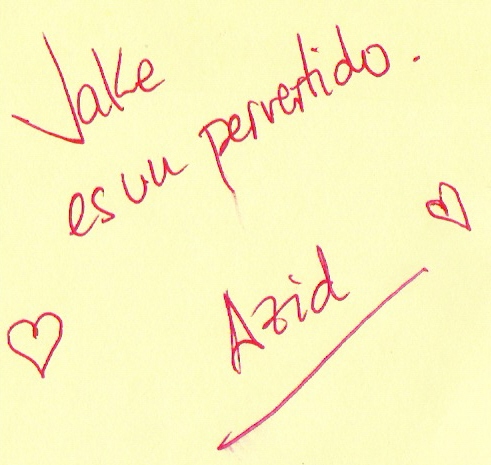 Jake
es un pervertido.
Azid